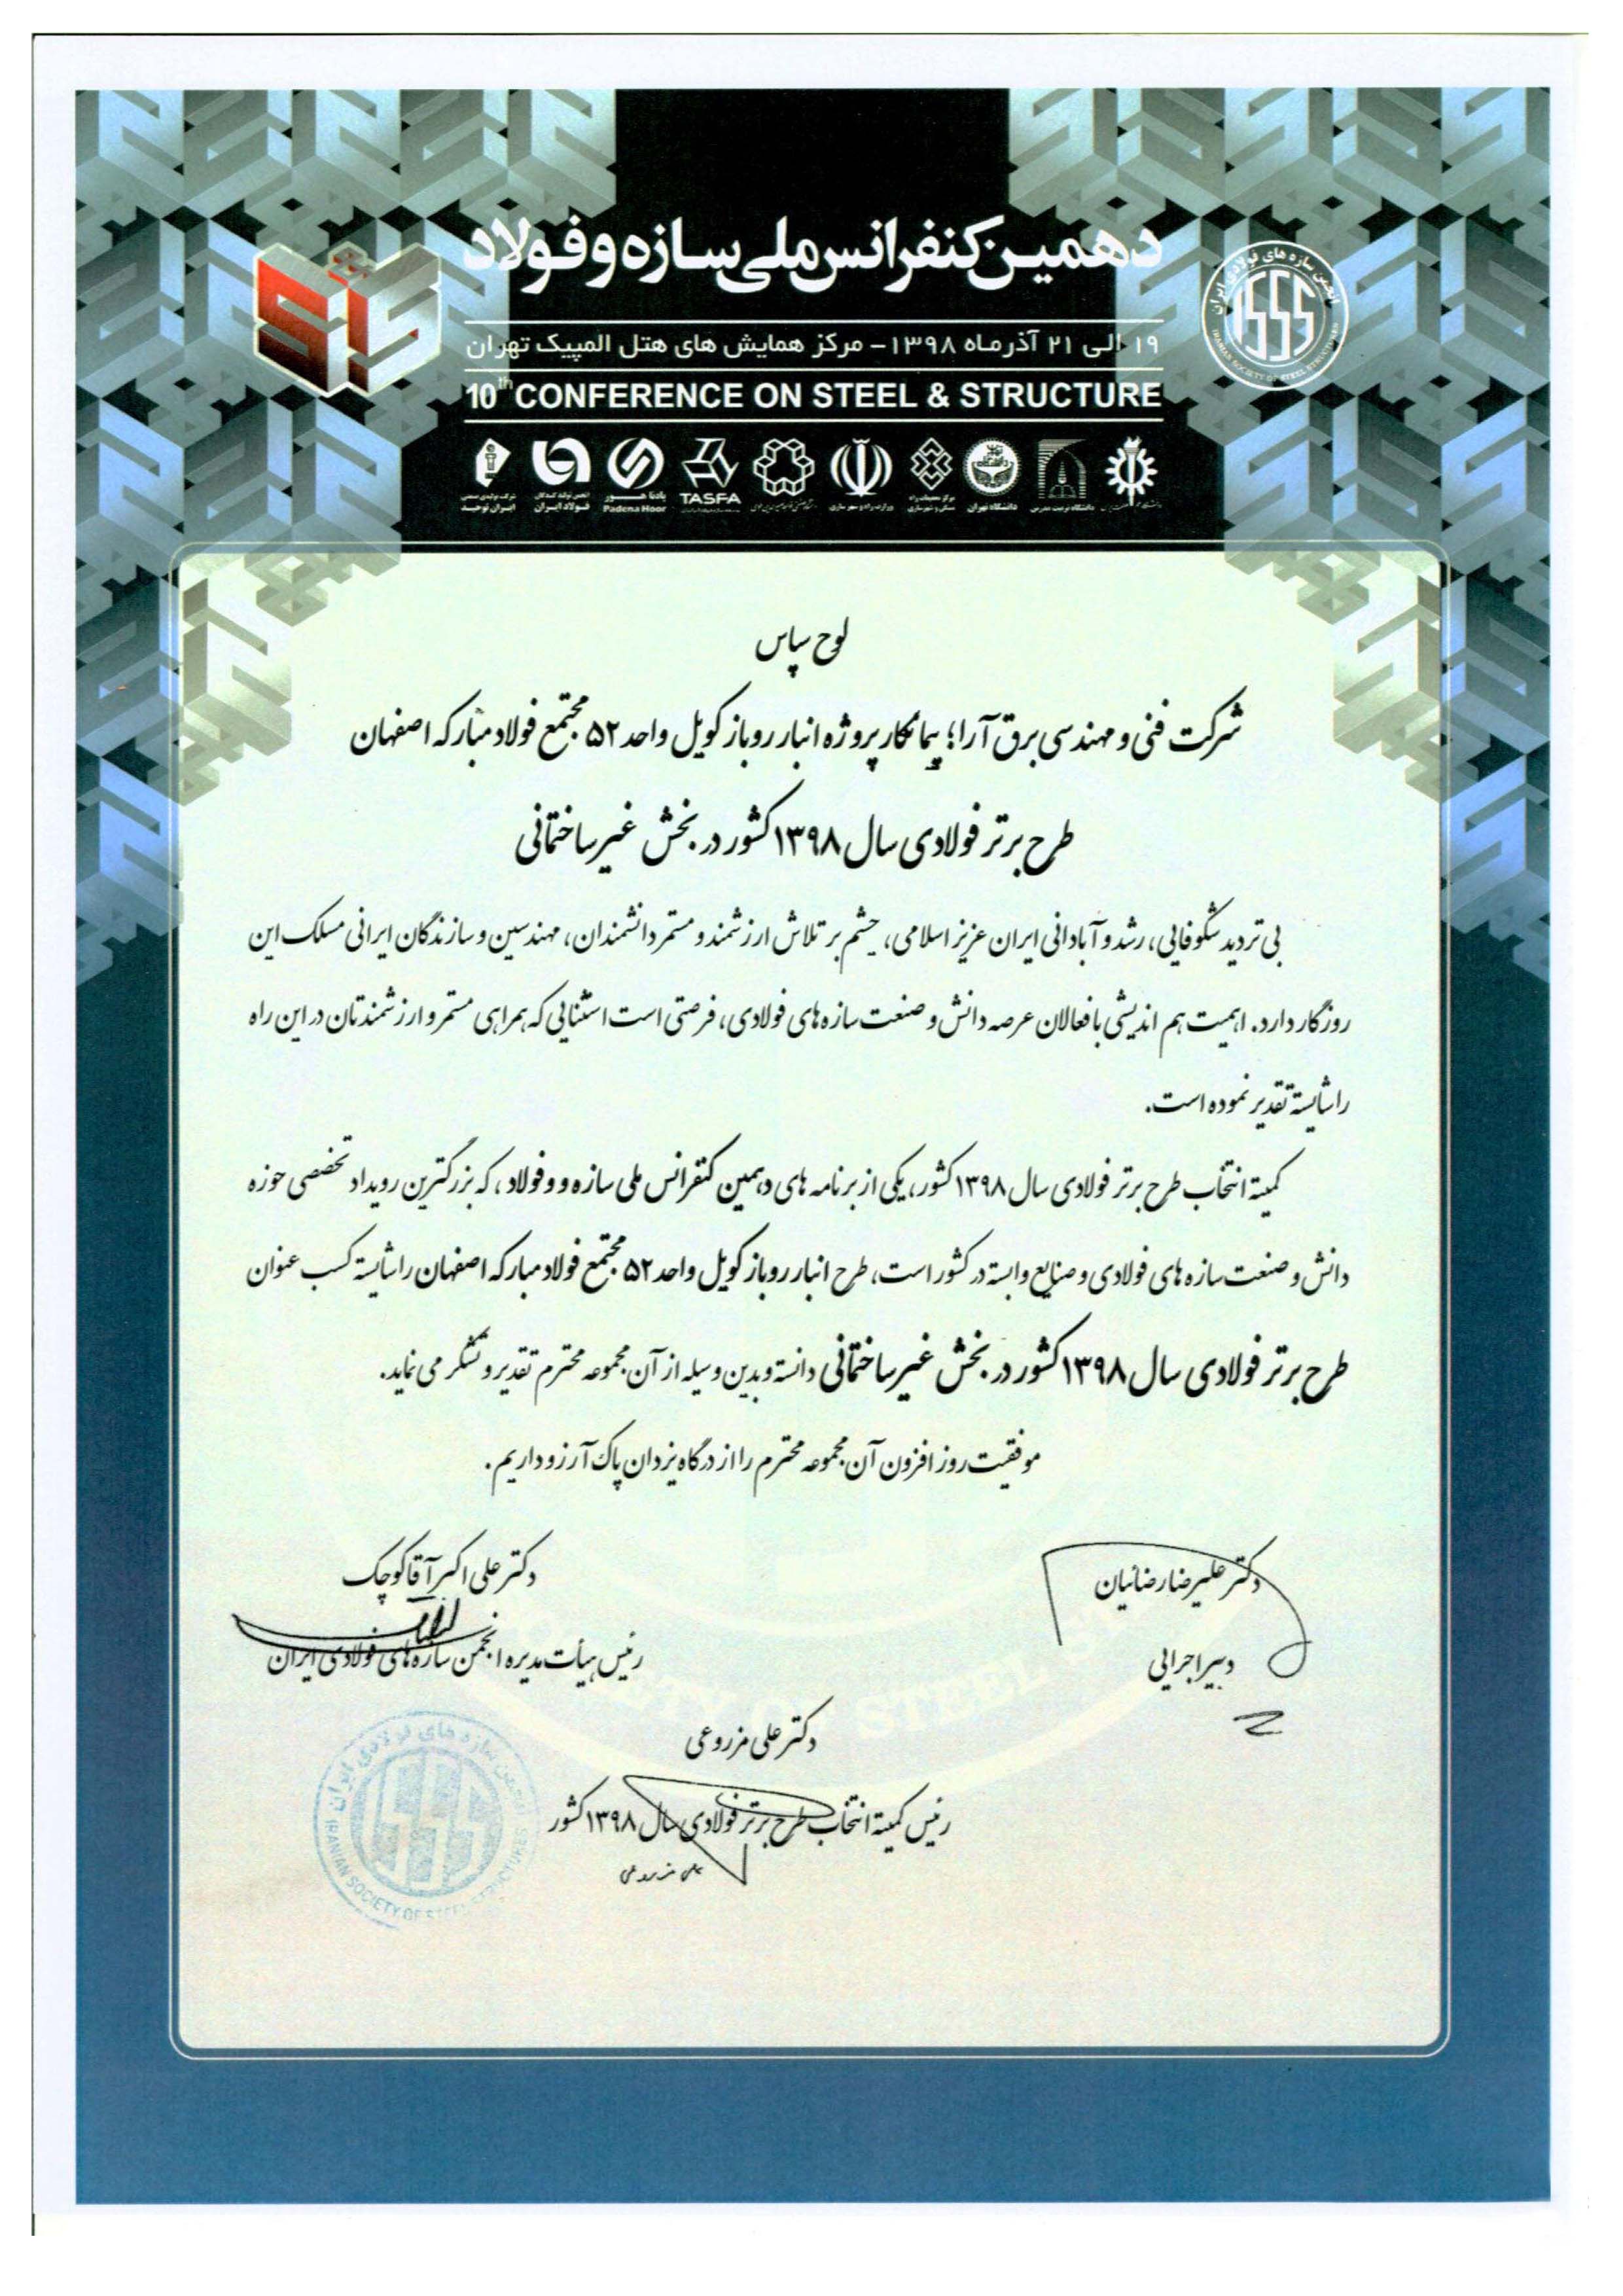 دهمین کنفرانس ملی سازه و فولاد
انجمن سازه های فولادی ایران
ISSS
IRANIAN SOCIETY OF STEEL STRUCTURES
۱۹ الی ۲۱ آذر ماه ۱۳۹۸ – مرکز همایش های هتل المپیک تهران
10th CONFERENCE ON STEEL & STRUCTURE
دانشگاه تربیت مدرس
دانشگاه تهران
مرکز تحقیقات راه مسکن و شهرسازی
وزارت راه و شهرسازی
TASFA
پادنا هور
Padena Hoor
انجمن تولیدکنندگان
فولاد ایران
شرکت تولیدی صنعتی
ایران توحید
لوح سپاس
شرکت فنی و مهندسی برق آرا؛ پیمانکار پروژه انبار روباز کویل واحد ۵۲ مجتمع فولاد مبارکه اصفهان
طرح برتر فولادی سال ۱۳۹۸ کشور در بخش غیرساختمانی
بی تردید شکوفایی، رشد و آبادانی ایران عزیز اسلامی، چشم بر تلاش ارزشمند و مستمر دانشمندان، مهندسین و سازندگان ایرانی مسلک این
روزگار دارد. اهمیت هم اندیشی با فعالان عرصه دانش و صنعت سازه های فولادی، فرصتی است استثنایی که همراهی مستمر و ارزشمندتان در این راه
را شایسته تقدیر نموده است.
کمیته انتخاب طرح برتر فولادی سال ۱۳۹۸ کشور، یکی از برنامه های دهمین کنفرانس ملی سازه و و فولاد، که بزرگترین رویداد تخصصی حوزه
دانش و صنعت سازه های فولادی و صنایع وابسته در کشور است، طرح انبار روباز کویل واحد ۵۲ مجتمع فولاد مبارکه اصفهان را شایسته کسب عنوان
طرح برتر فولادی سال ۱۳۹۸ کشور در بخش غیرساختمانی دانسته و بدین وسیله از آن مجموعه محترم تقدیر و تشکر می نماید.
موفقیت روز افزون آن مجموعه محترم را از درگاه یزدان پاک آرزو داریم.
دکتر علیرضا رضائیان
دبیر اجرایی
دکتر علی اکبر آقاکوچک
رئیس هیأت مدیره انجمن سازه های فولادی ایران
دکتر علی مزروعی
رئیس کمیته انتخاب طرح برتر فولادی سال ۱۳۹۸ کشور
علی مزروعی
انجمن سازه های فولادی ایران
IRANIAN SOCIETY OF STEEL STRUCTURES